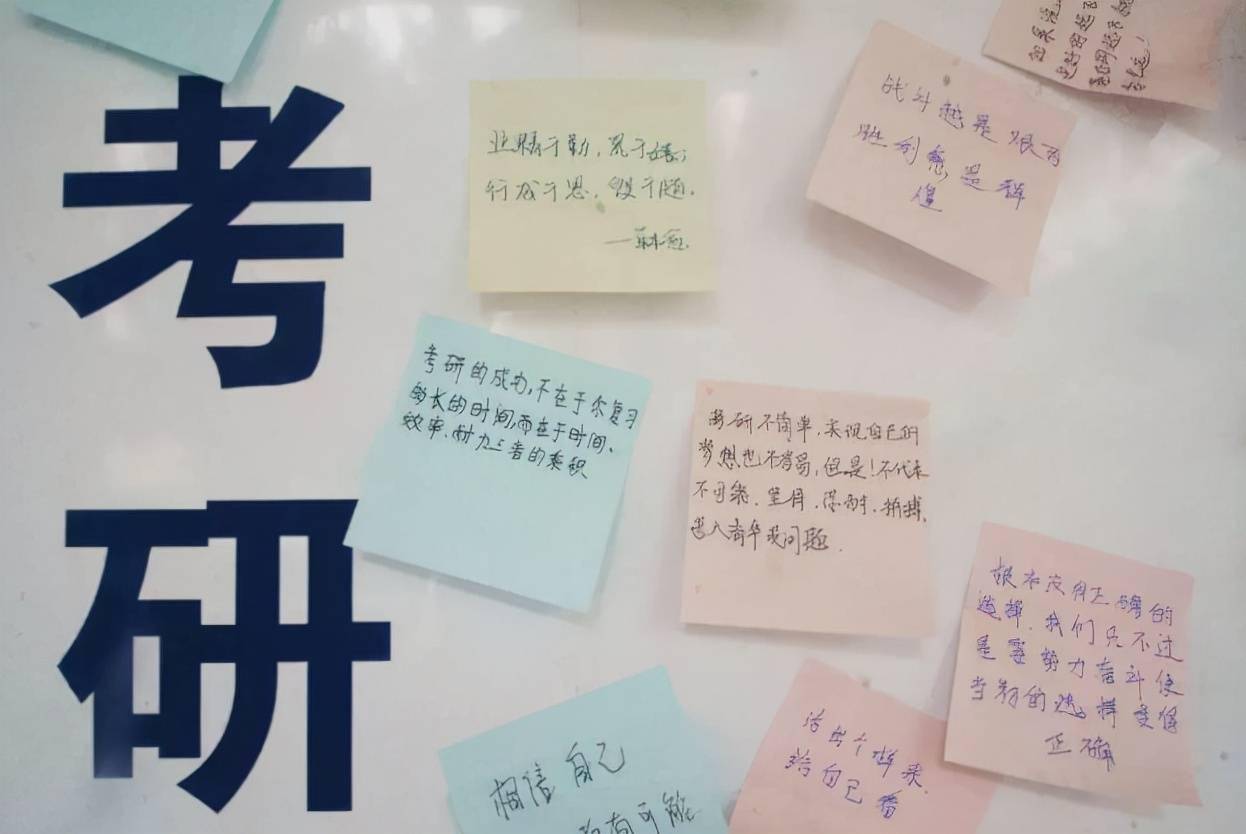 考
研
业精于勤，荒于嬉；
行成于思，毁于随。
战斗越是艰
胜利愈是辉
煌
考研的成功,不在于你复习
的长的时间,而在于时间、
效率、耐力三者的乘积
考研不简单，实现自己的
梦想也不容易，但是！不代表
不可能．坚持．
根本没有正确的
选择．我们只不过
是要努力奋斗使
当初的选择变得
正确
相信 自己
有可能
活出个样来．
给自己看